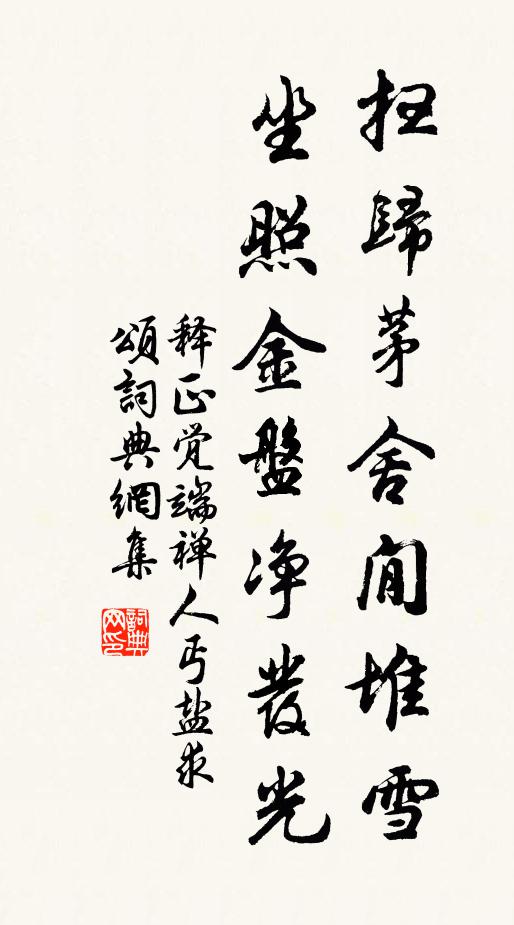 扫歸茅舍閒堆雪
坐照金盤净發光
释正觉端禅人丐盐求
頌詞典網集
詞典
网印